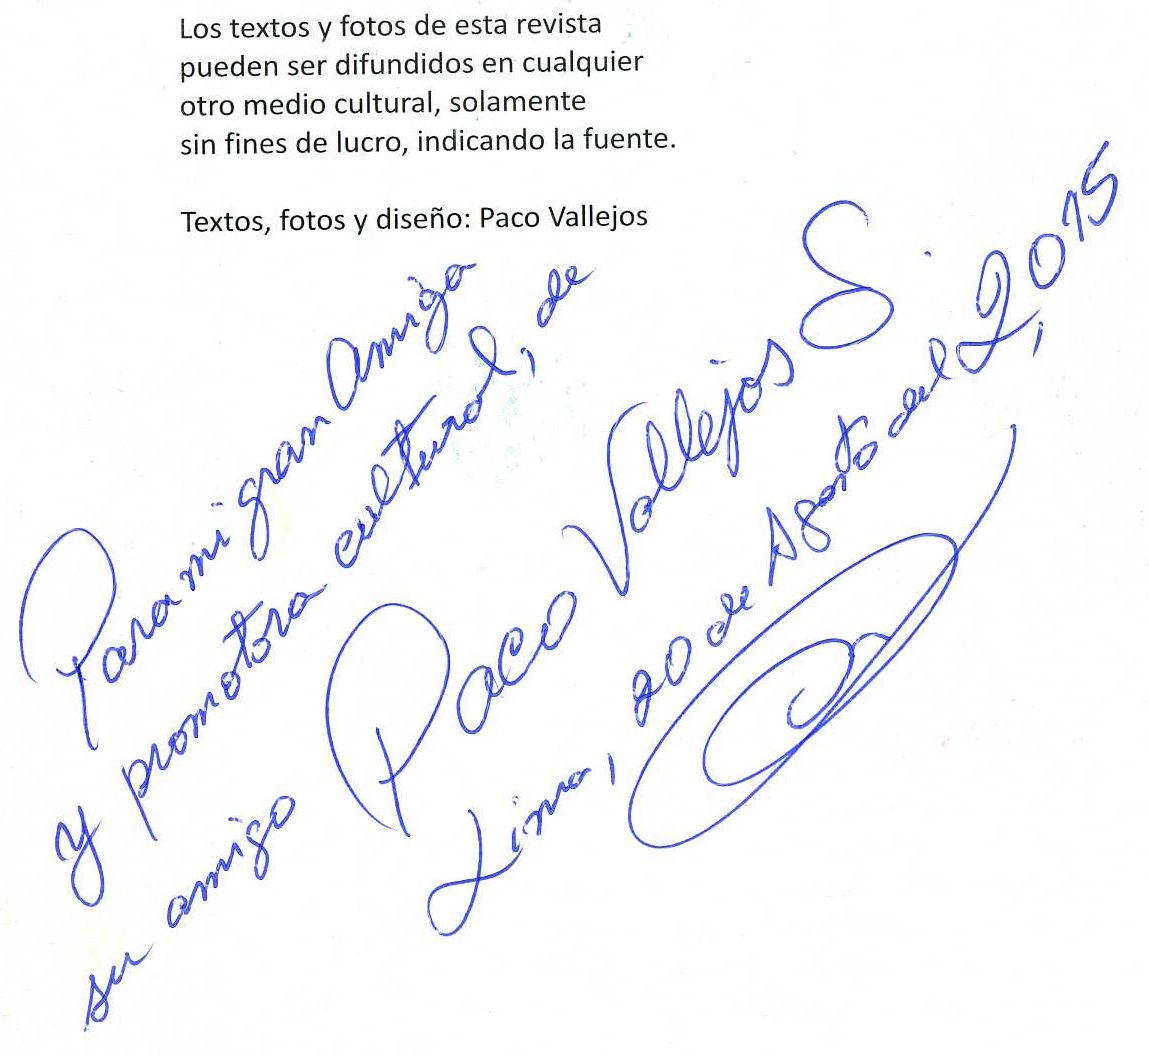 Los textos y fotos de esta revista
pueden ser difundidos en cualquier
otro medio cultural, solamente
sin fines de lucro, indicando la fuente.
Textos, fotos y diseño: Paco Vallejos
Para mi gran Amiga
y promotora cultural, de
su amigo Paco Vallejos S.
Lima, 20 de Agosto del 2,015